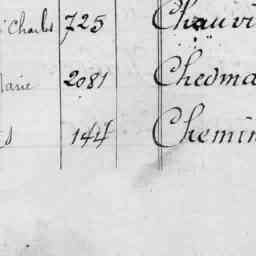 Charles 725 Chauvi
Marie 2081 Chedma
144 Chemin